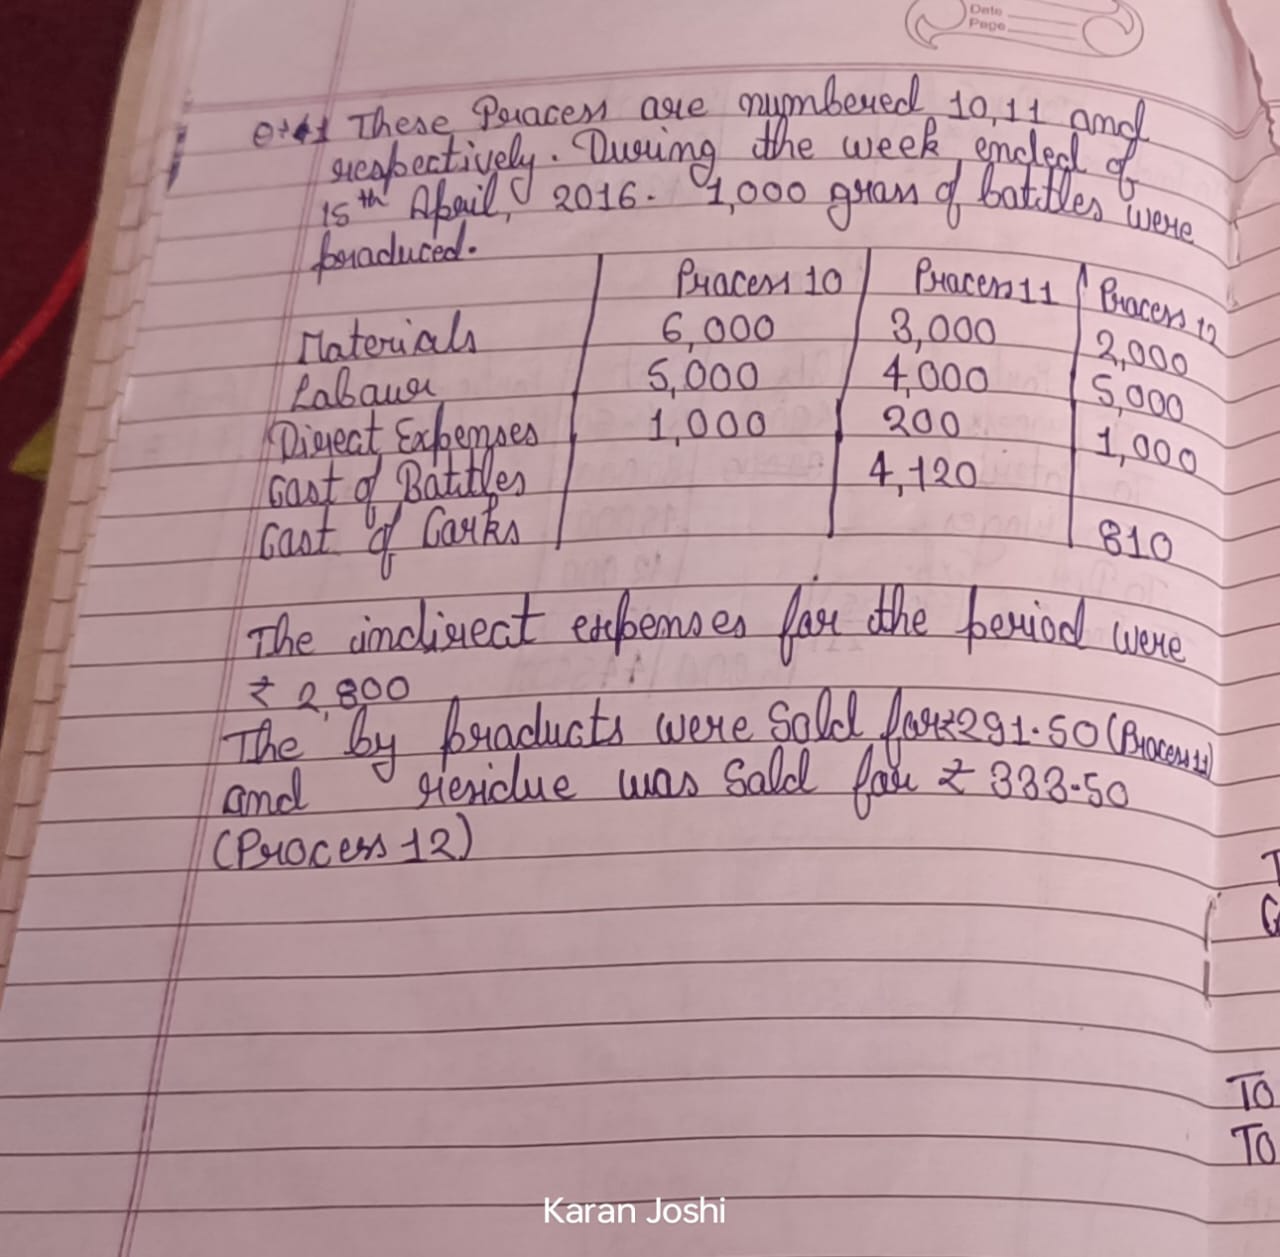 Date
Page
These Process are numbered 10,11 and
respectively. During the week ended of
15th April, 2016. 1,000 gross of bottles were
produced.
Process 10 Process 11 Process 12
Materials 6,000 3,000 2,000
Labour 5,000 4,000 5,000
Direct Expenses 1,000 200 1,000
Cost of Bottles 4,120
Cost of Corks 810
The indirect expenses for the period were
₹ 2,800
The by products were sold for ₹291.50 (Process 11)
and residue was sold for ₹ 333.50
(Process 12)
To
To
Karan Joshi